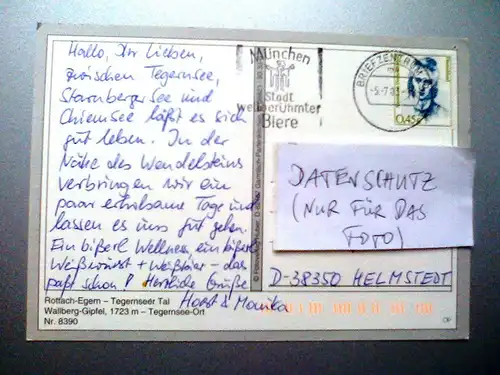 Hallo, Ihr Lieben,
zwischen Tegernsee,
Starnberger See und
Chiemsee läßt es sich
gut leben. In der
Nähe des Wendelsteins
verbringen wir ein
paar erholsame Tage und
lassen es uns gut gehen.
Ein bißerl Wellness, ein bißerl
Weißwürst + Weißbier - das
paßt schon! Herzliche Grüße
Horst & Monika
Rottach-Egern – Tegernseer Tal
Wallberg-Gipfel, 1723 m – Tegernsee-Ort
Nr. 8390
München
Stadt
weltberühmter
Biere
BRIEFZENTRUM
0,45
DATENSCHUTZ
(NUR FÜR DAS
FOTO)
D-38350 HELMSTEDT